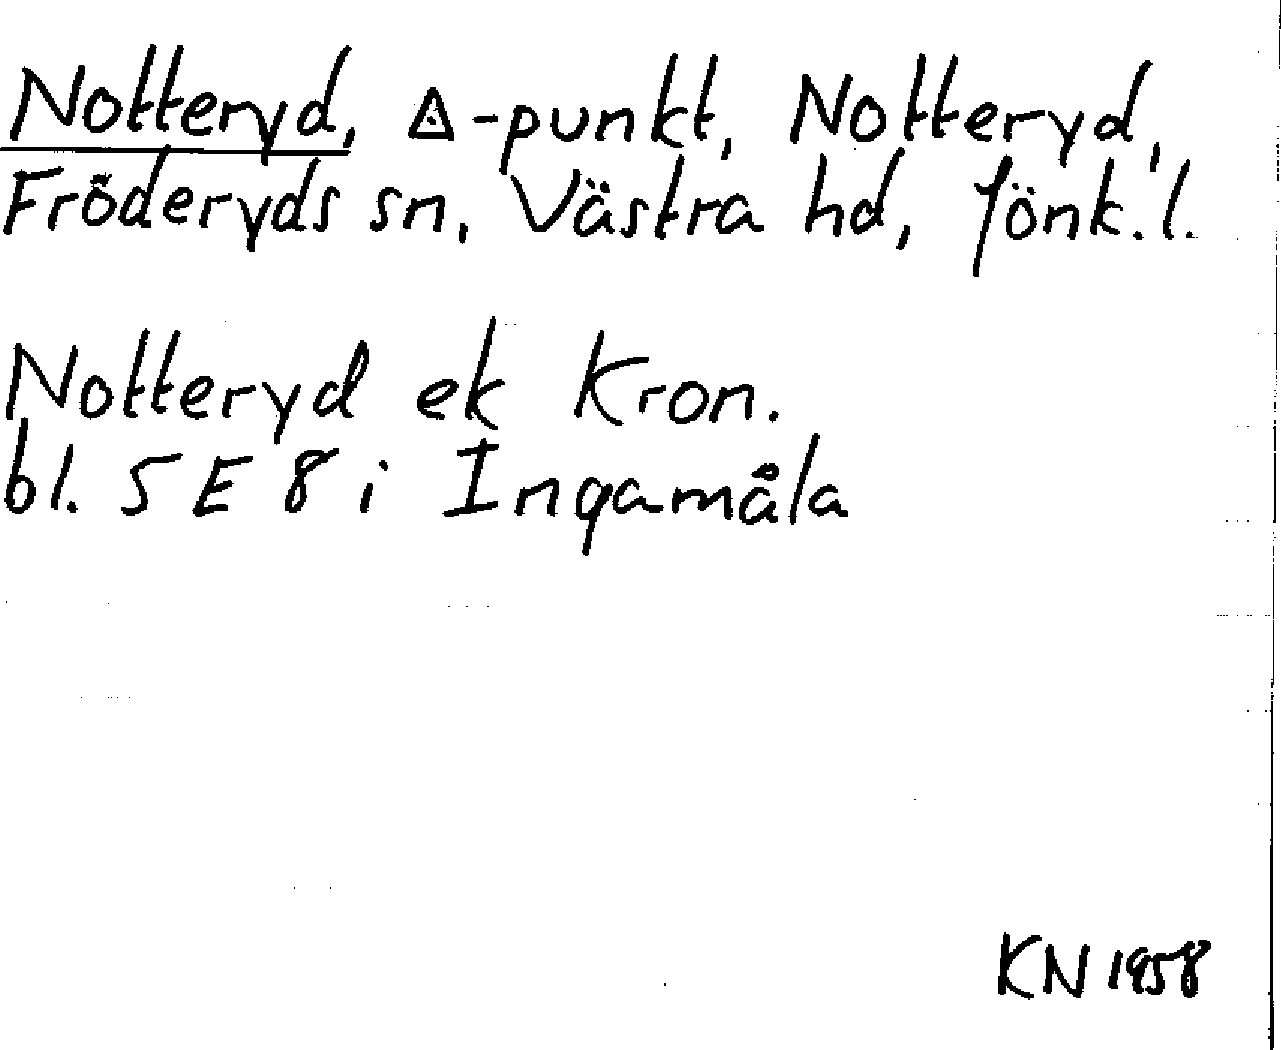 Notteryd, △-punkt, Notteryd,
Fröderyds sn, Västra hd, Jönk.l.
Notteryd ek Kron.
bl. 5 E 8 i Ingamåla
KN 1958